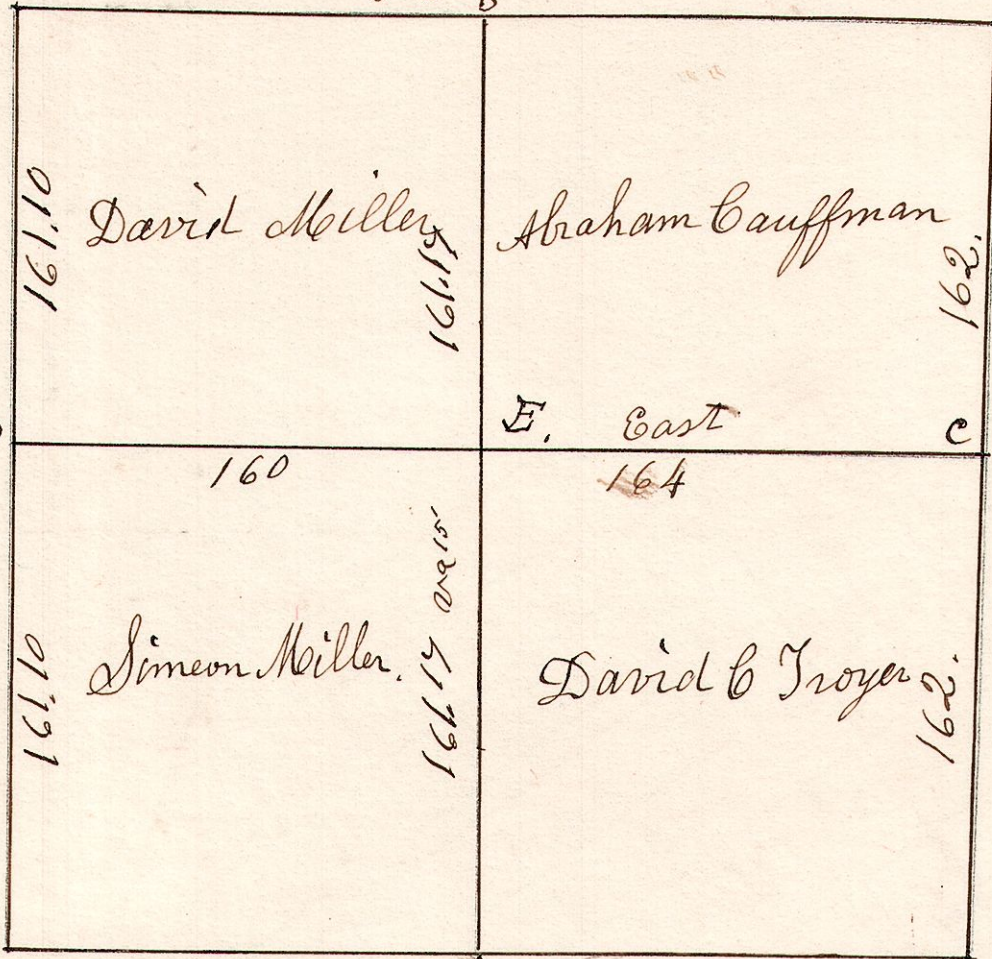 B
161.10
David Miller
161.17
Abraham Cauffman
162.
E. East C
160
164
161.10
Simeon Miller.
161.17
David C Troyer
162.